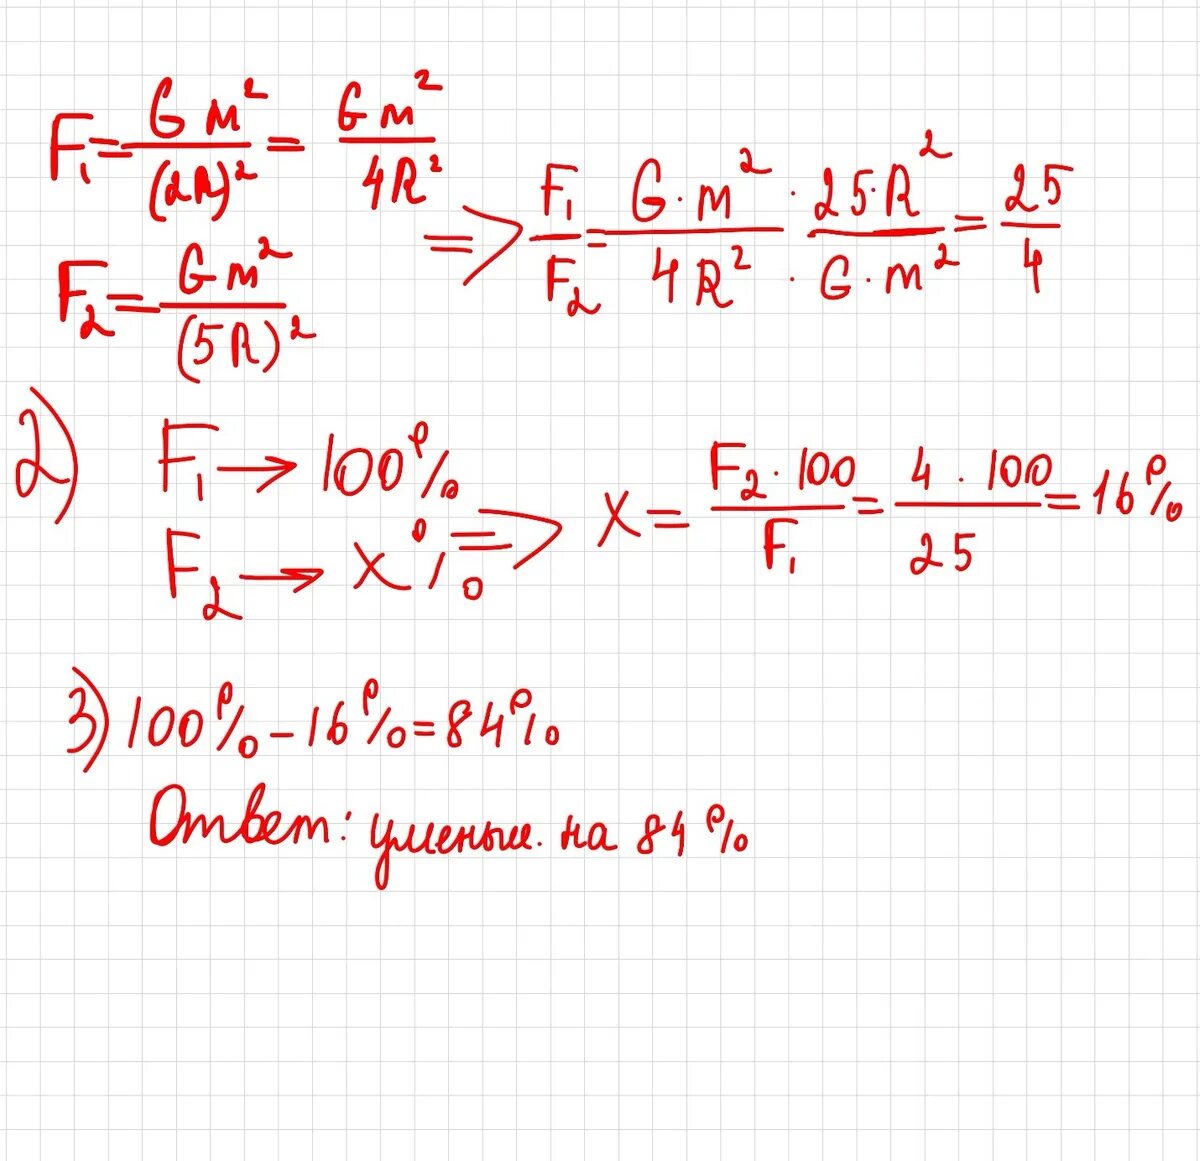 F₁ = G м² / (2R)² = G м² / 4R²
F₂ = G м² / (5R)²
=> F₁ / F₂ = G · м² / 4R² · 25 · R² / G · м² = 25 / 4
2) F₁ → 100%
F₂ → x%
=> x = F₂ · 100 / F₁ = 4 · 100 / 25 = 16%
3) 100% - 16% = 84%
Ответ: уменьш. на 84%